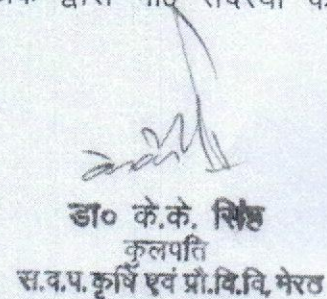 द्वारा
डा० के.के. सिंह
कुलपति
स.व.प.कृषि एवं प्रौ.वि.वि. मेरठ